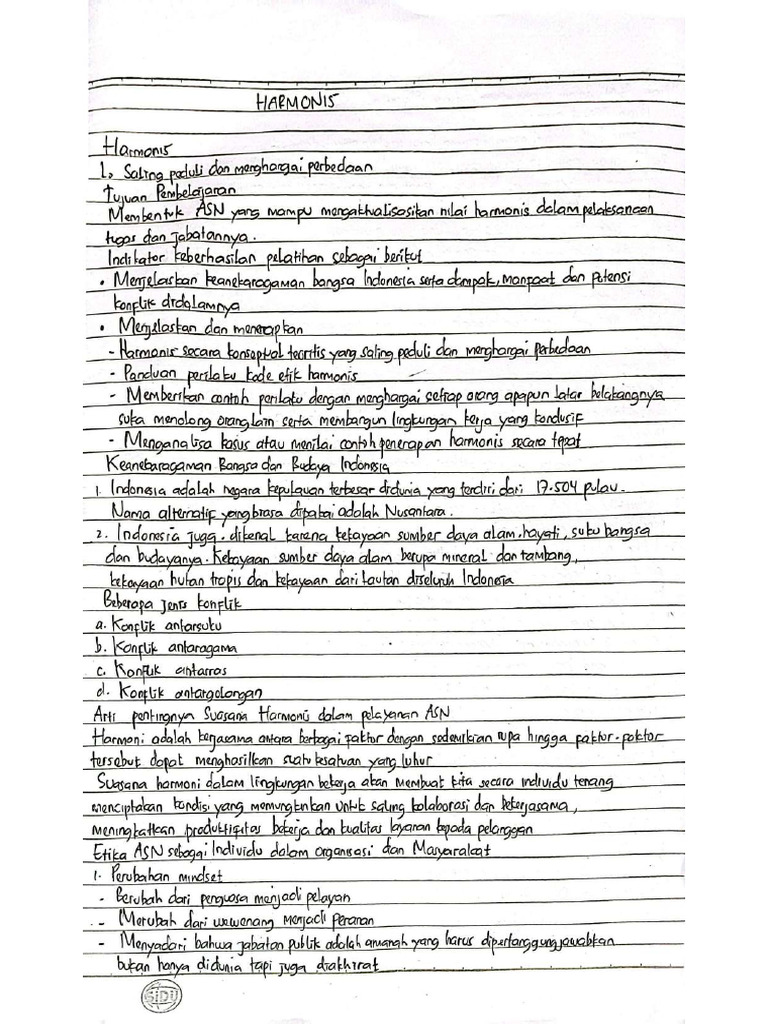 HARMONIS
Harmonis
↳ Saling peduli dan menghargai perbedaan
Tujuan Pembelajaran
Membentuk ASN yang mampu mengaktualisasikan nilai harmonis dalam pelaksanaan
tugas dan jabatannya.
Indikator keberhasilan pelatihan sebagai berikut
• Menjelaskan keanekaragaman bangsa Indonesia serta dampak, manfaat dan potensi
konflik didalamnya
• Menjelaskan dan menerapkan
- Harmonis secara konseptual teoritis yang saling peduli dan menghargai perbedaan
- Panduan perilaku kode etik harmonis
- Memberikan contoh perilaku dengan menghargai setiap orang apapun latar belakangnya
suka menolong orang lain serta membangun lingkungan kerja yang kondusif
- Menganalisa kasus atau menilai contoh penerapan harmonis secara tepat
Keanekaragaman Bangsa dan Budaya Indonesia
1. Indonesia adalah negara kepulauan terbesar didunia yang terdiri dari 17.504 pulau.
Nama alternatif yang biasa dipakai adalah Nusantara.
2. Indonesia juga dikenal karena kekayaan sumber daya alam, hayati, suku bangsa
dan budayanya. Kekayaan sumber daya alam berupa mineral dan tambang,
kekayaan hutan tropis dan kekayaan dari lautan diseluruh Indonesia
Beberapa jenis konflik
a. Konflik antarsuku
b. Konflik antaragama
c. Konflik antarras
d. Konflik antargolongan
Arti pentingnya Suasana Harmonis dalam pelayanan ASN
Harmoni adalah kerjasama antara berbagai faktor dengan sedemikian rupa hingga faktor-faktor
tersebut dapat menghasilkan suatu kesatuan yang luhur
Suasana harmoni dalam lingkungan bekerja akan membuat kita secara individu tenang
menciptakan kondisi yang memungkinkan untuk saling kolaborasi dan bekerjasama,
meningkatkan produktifitas bekerja dan kualitas layanan kepada pelanggan
Etika ASN sebagai Individu dalam organisasi dan Masyarakat
1. Perubahan mindset
- Berubah dari penguasa menjadi pelayan
- Merubah dari wewenang menjadi peranan
- Menyadari bahwa jabatan publik adalah amanah yang harus dipertanggungjawabkan
bukan hanya didunia tapi juga diakhirat
SIDU